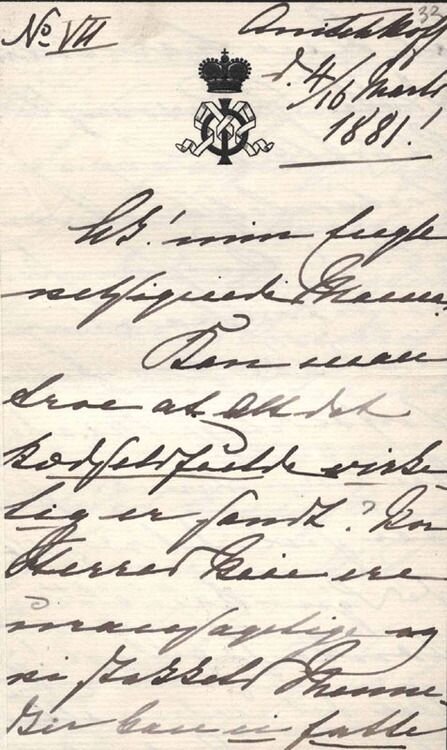 No VII
32
Anitchkoff
d. 4/16 Marts
1881!
Ak! min Engle
velsignede Mama.
Kan man
troe at alt det
Rædselsfulde virke
lig er sandt? Vor
Herres Veie ere
uransagelige og
vi stakkels Menne
sker kan ei fatte